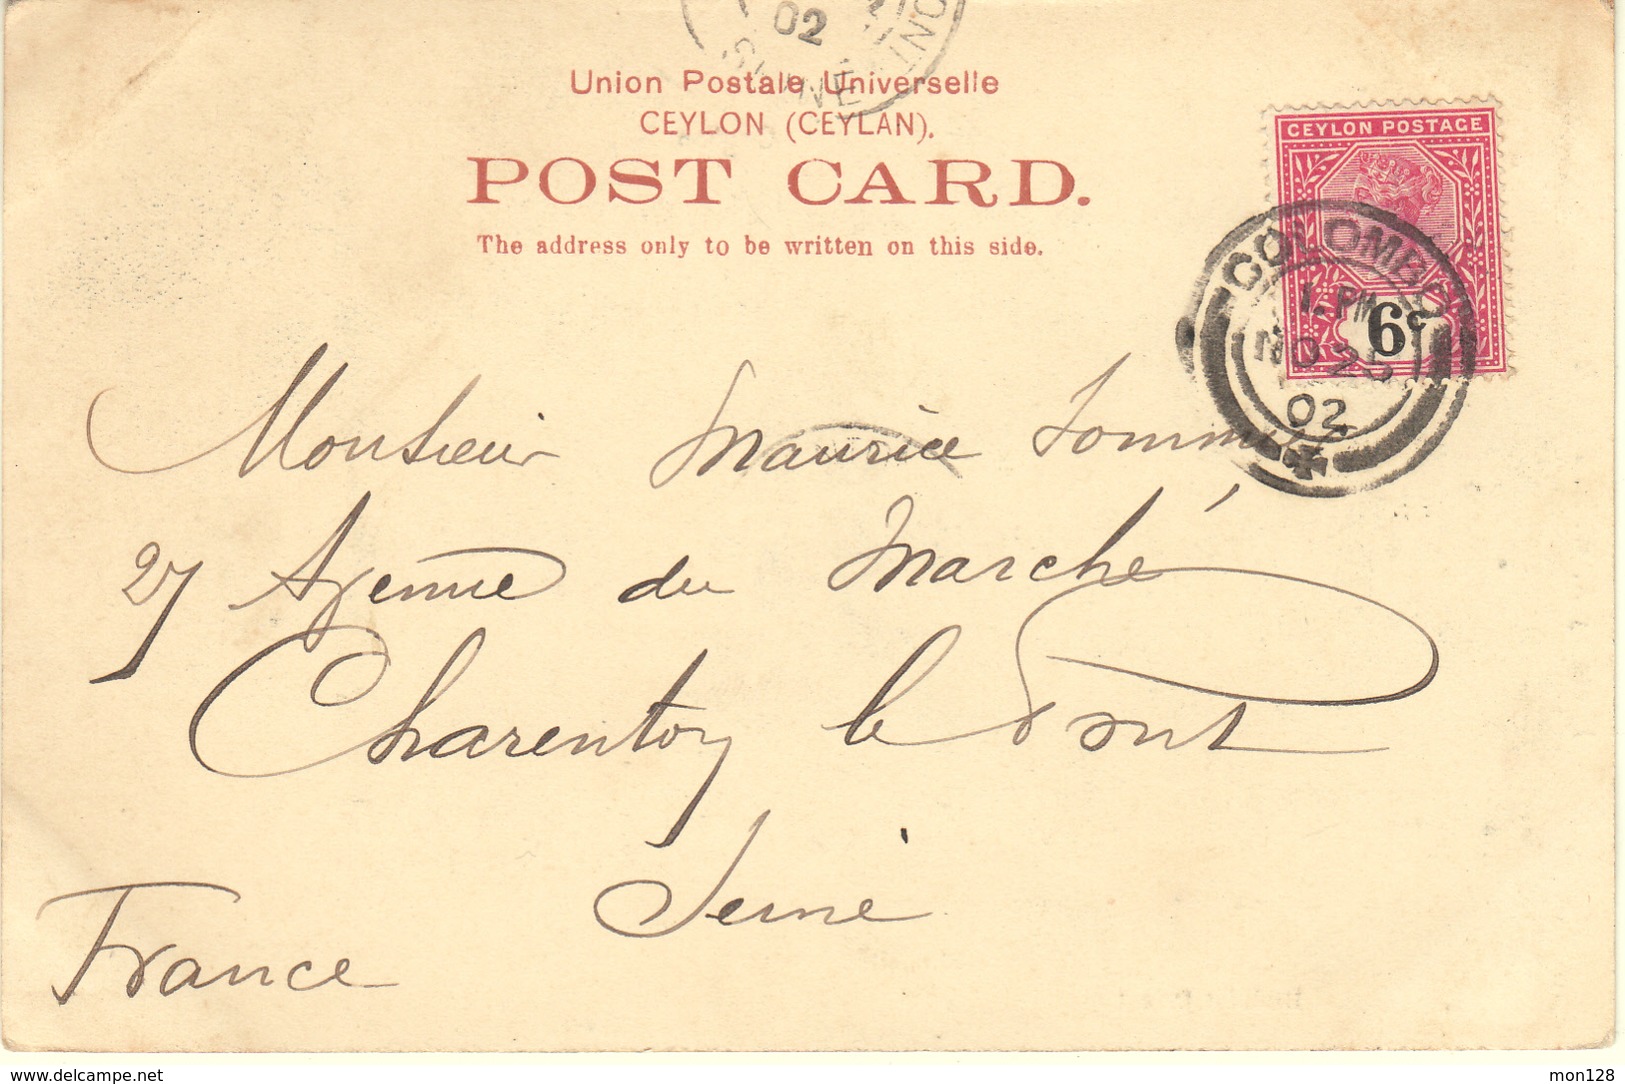 02
SEINE
Union Postale Universelle
CEYLON (CEYLAN).
POST CARD.
The address only to be written on this side.
CEYLON POSTAGE
6c
COLOMBO
1. PM
NO 25
02
Monsieur Maurice
27 Avenue du Marché
Charenton le Pont
Seine
France
www.delcampe.net
mon128